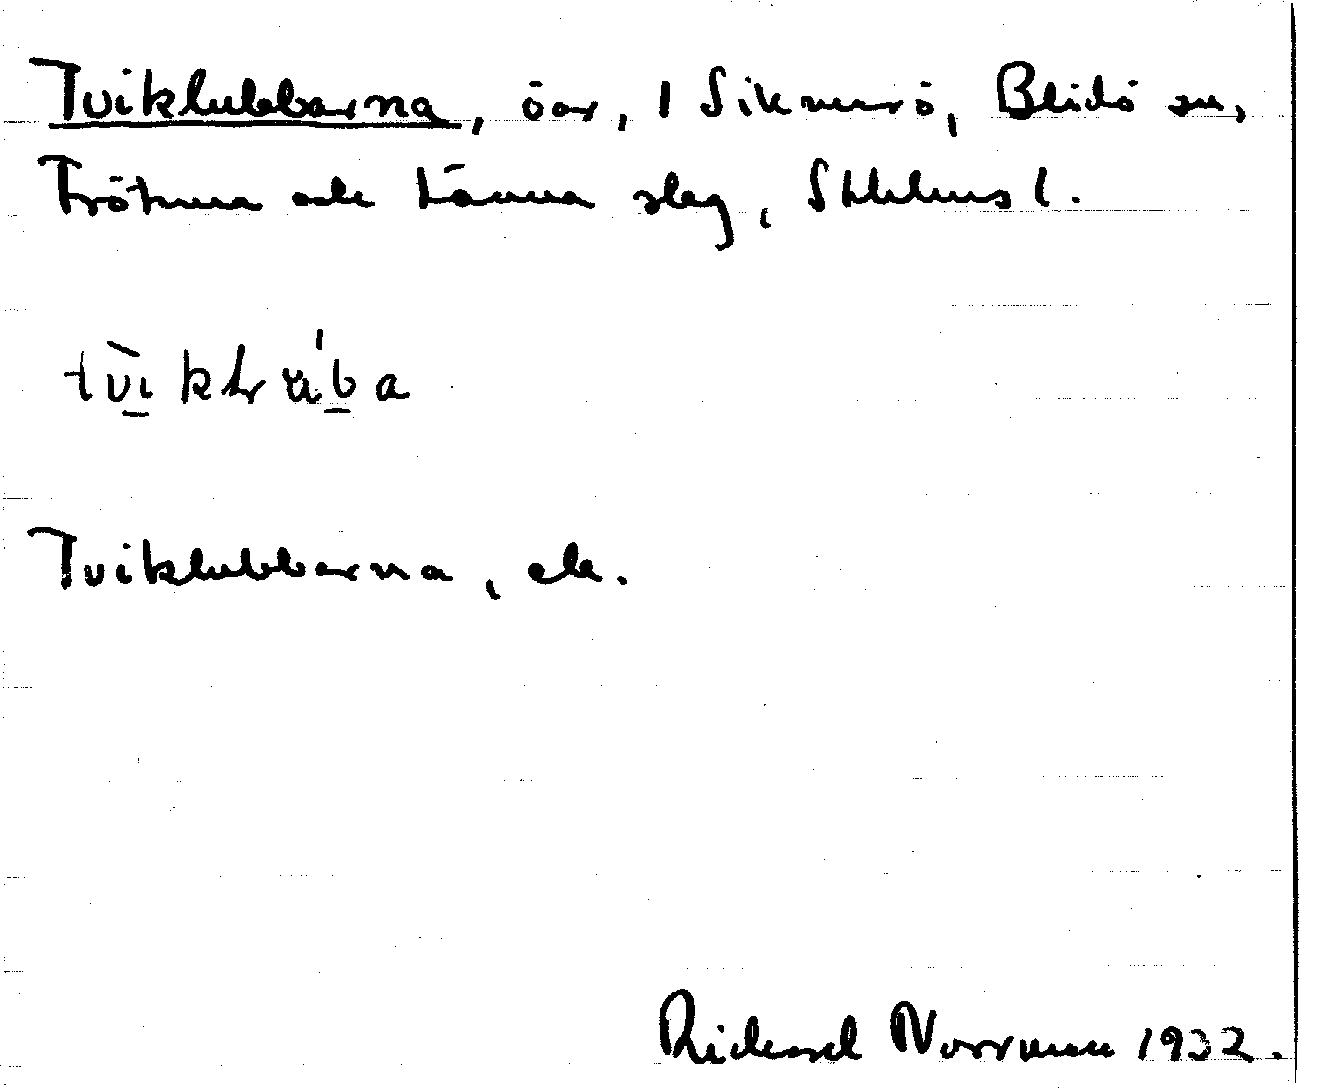 Tviklubbarna, öar, 1 Sikmarö, Blidö sn,
Frötuna och Länna slag, Sthlms l.
Tviklubbarna, ek.
Richard Norrman 1932.